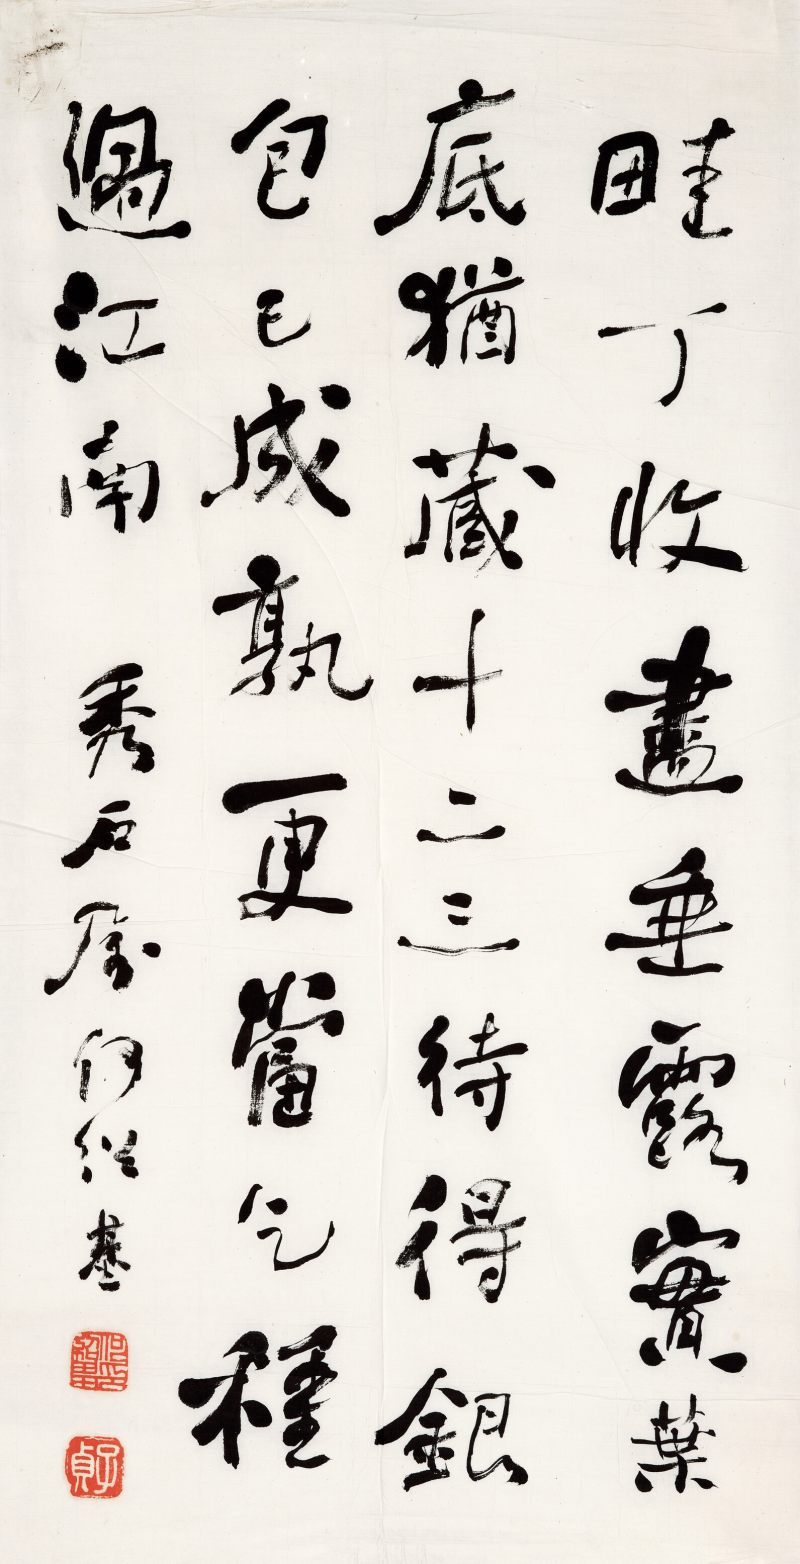 畦丁收盡垂露實葉
底猶藏十二三待得銀
包已成孰更當乞種
過江南 秀石屬何紹基
何紹基印
子貞